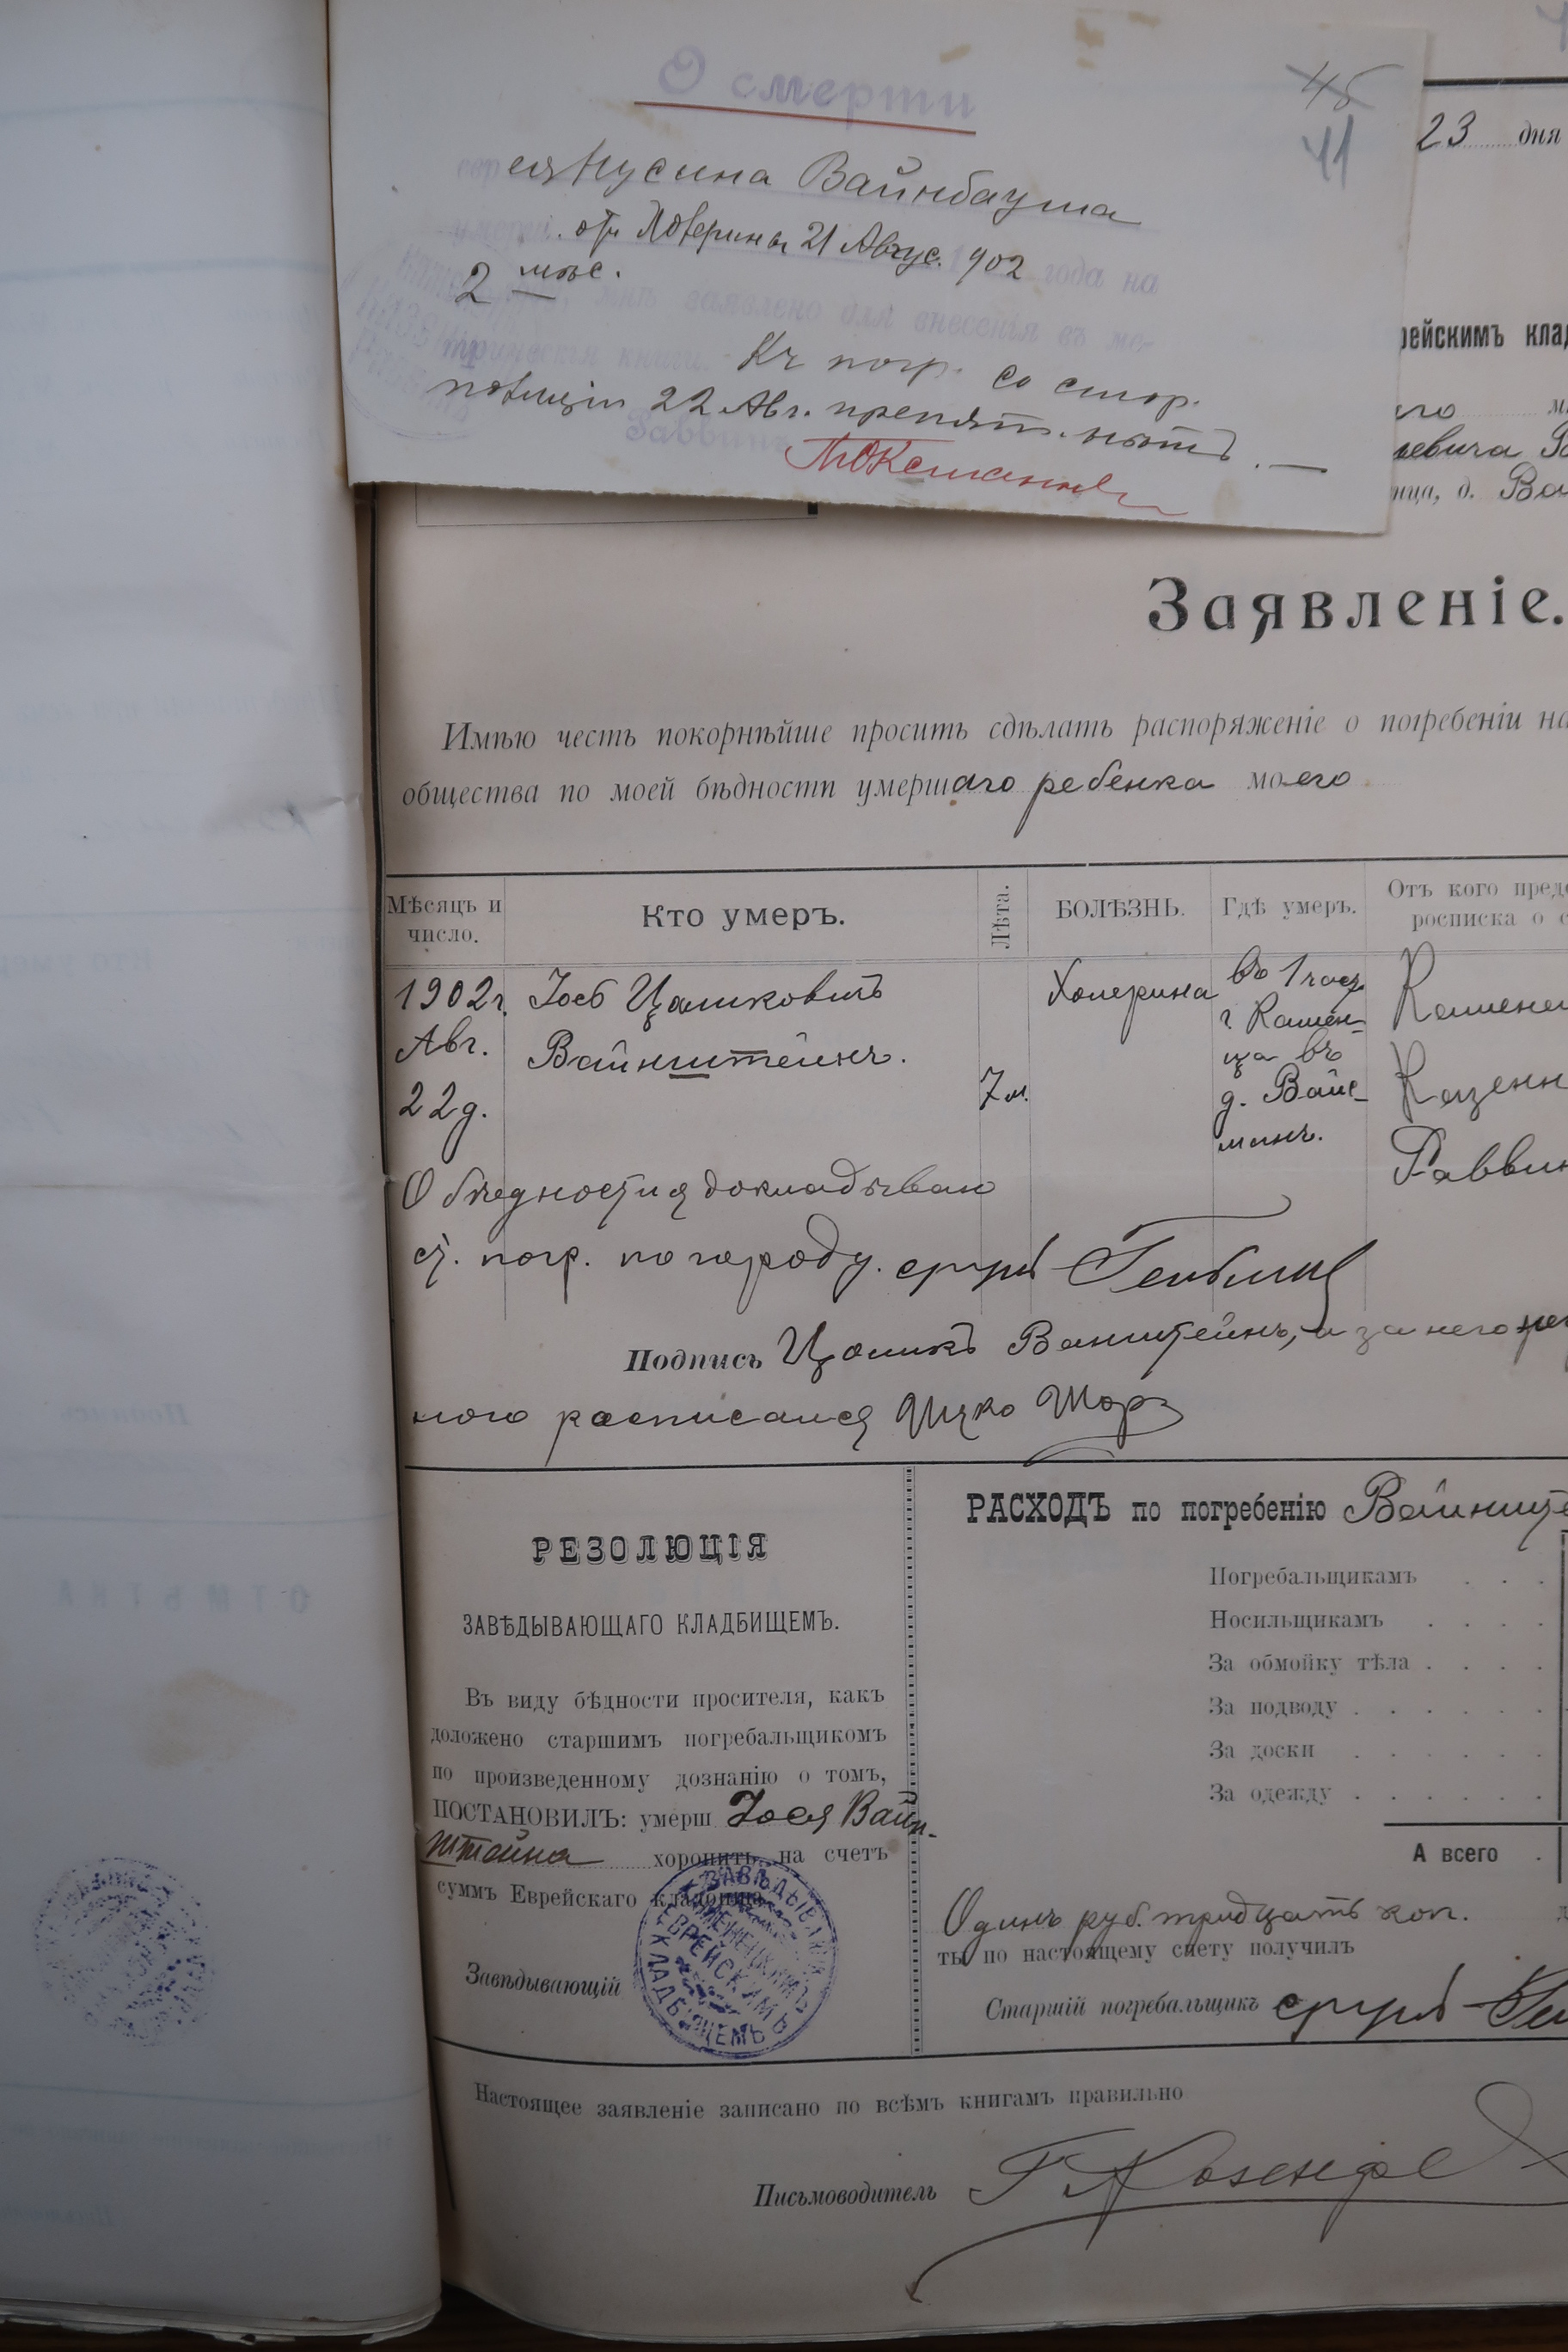 О смерти
45
41
Нусина Вайнбаума
отъ Холерины 21 Авгус. 902 года на
2 мѣс.
заявлено для внесенія въ ме-
трическія книги. Къ погр. со стор.
полиціи 22 Авг. препят. нѣтъ. —
Раввинъ
23 дня
рейскимъ клад
аго
левича
ица, д. Ва
Заявленіе.
Имѣю честь покорнѣйше просить сдѣлать распоряженіе о погребеніи на
общества по моей бѣдности умершаго ребенка моего
Мѣсяцъ и число.
Кто умеръ.
Лѣта.
БОЛѢЗНЬ.
Гдѣ умеръ.
Отъ кого предс
росписка о с
1902г.
Авг.
22д.
Іосъ Цаликовичъ
Вайнштейнъ.
7 м.
Холерина
въ 1 част.
г. Камен-
ца въ
д. Вайс-
манъ.
Каменец
Казенн
Раввин
О бѣдности я докладываю
ст. погр. по городу.
Подпись Цаликъ Ванштейнъ, а за него негр
ного расписался Шорз
РЕЗОЛЮЦІЯ
ЗАВѢДЫВАЮЩАГО КЛАДБИЩЕМЪ.
Въ виду бѣдности просителя, какъ
доложено старшимъ погребальщикомъ
по произведенному дознанію о томъ,
ПОСТАНОВИЛЪ: умерш Іося Вайн-
штейна хоронить на счетъ
суммъ Еврейскаго кладбища.
Завѣдывающій
ЗАВѢДЫВАЮЩІЙ КАМЕНЕЦКИМЪ ЕВРЕЙСКИМЪ КЛАДБИЩЕМЪ
РАСХОДЪ по погребенію Вайнште
Погребальщикамъ . . .
Носильщикамъ . . . .
За обмойку тѣла . . . .
За подводу . . . . . .
За доски . . . . . .
За одежду . . . . . .
А всего .
Одинъ руб. тридцать коп.
ты по настоящему счету получилъ
Старшій погребальщикъ
Настоящее заявленіе записано по всѣмъ книгамъ правильно
Письмоводитель